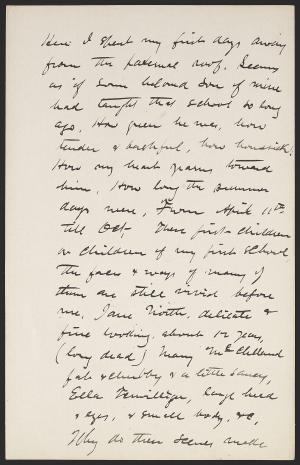 Here I spent my first days away
from the paternal roof. Seems
as if some beloved son of mine
had taught that school so long
ago. How green he was, how
tender & bashful, how homesick!
How my heart yearns toward
him. How long the summer
days were, From April 11th
till Oct. These first children
or children of my first school,
the faces & ways of many of
them are still vivid before
me, Jane North, delicate &
fine looking, about 12 years,
(long dead) Mary McLelland
fat & chubby & a little saucy,
Ella Terwilliger, large head
& eyes, & small body, &c,
Why do these scenes make